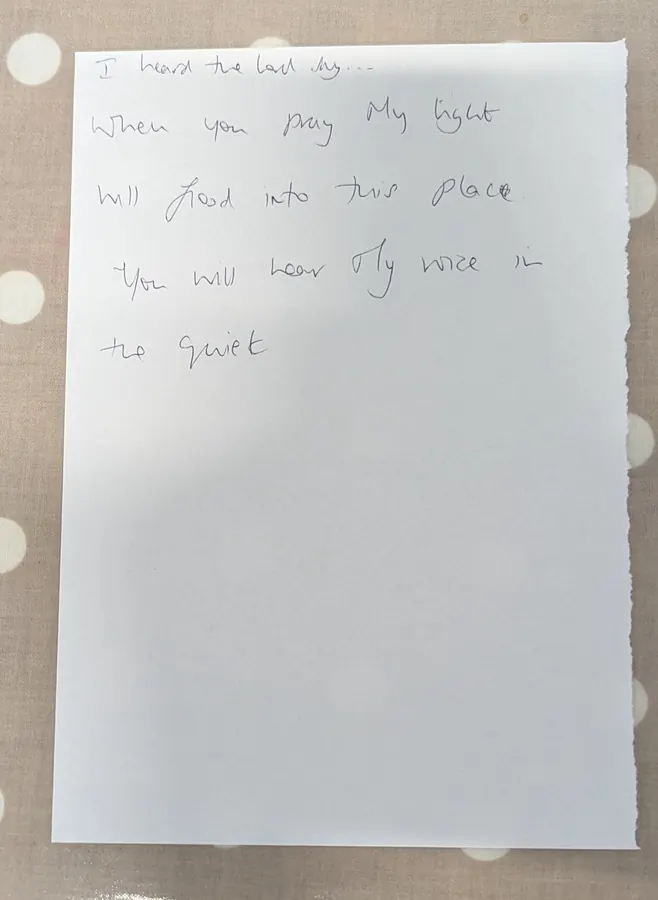 I heard the Lord say...
When you pray My light
will flood into this place
You will hear My voice in
the quiet